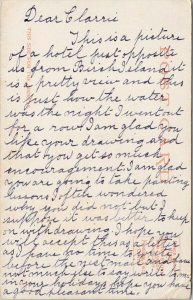 Dear Clarrie
This is a picture
of a hotel just opposite
us from Birsh Island it
is a pretty view and this
is just how the water
was the night I went out
for a row. I am glad you
like your drawing and
that you get so much
encouragement. I am glad
you are going to take painting
lessons I often wondered
why you did not but I
suppose it was better to keep
on with drawing. I hope you
will accept this as a letter
as I have no time to write
before the next mail. I am
not much else to say write soon
in your holidays hope you have
a good pleasant time.